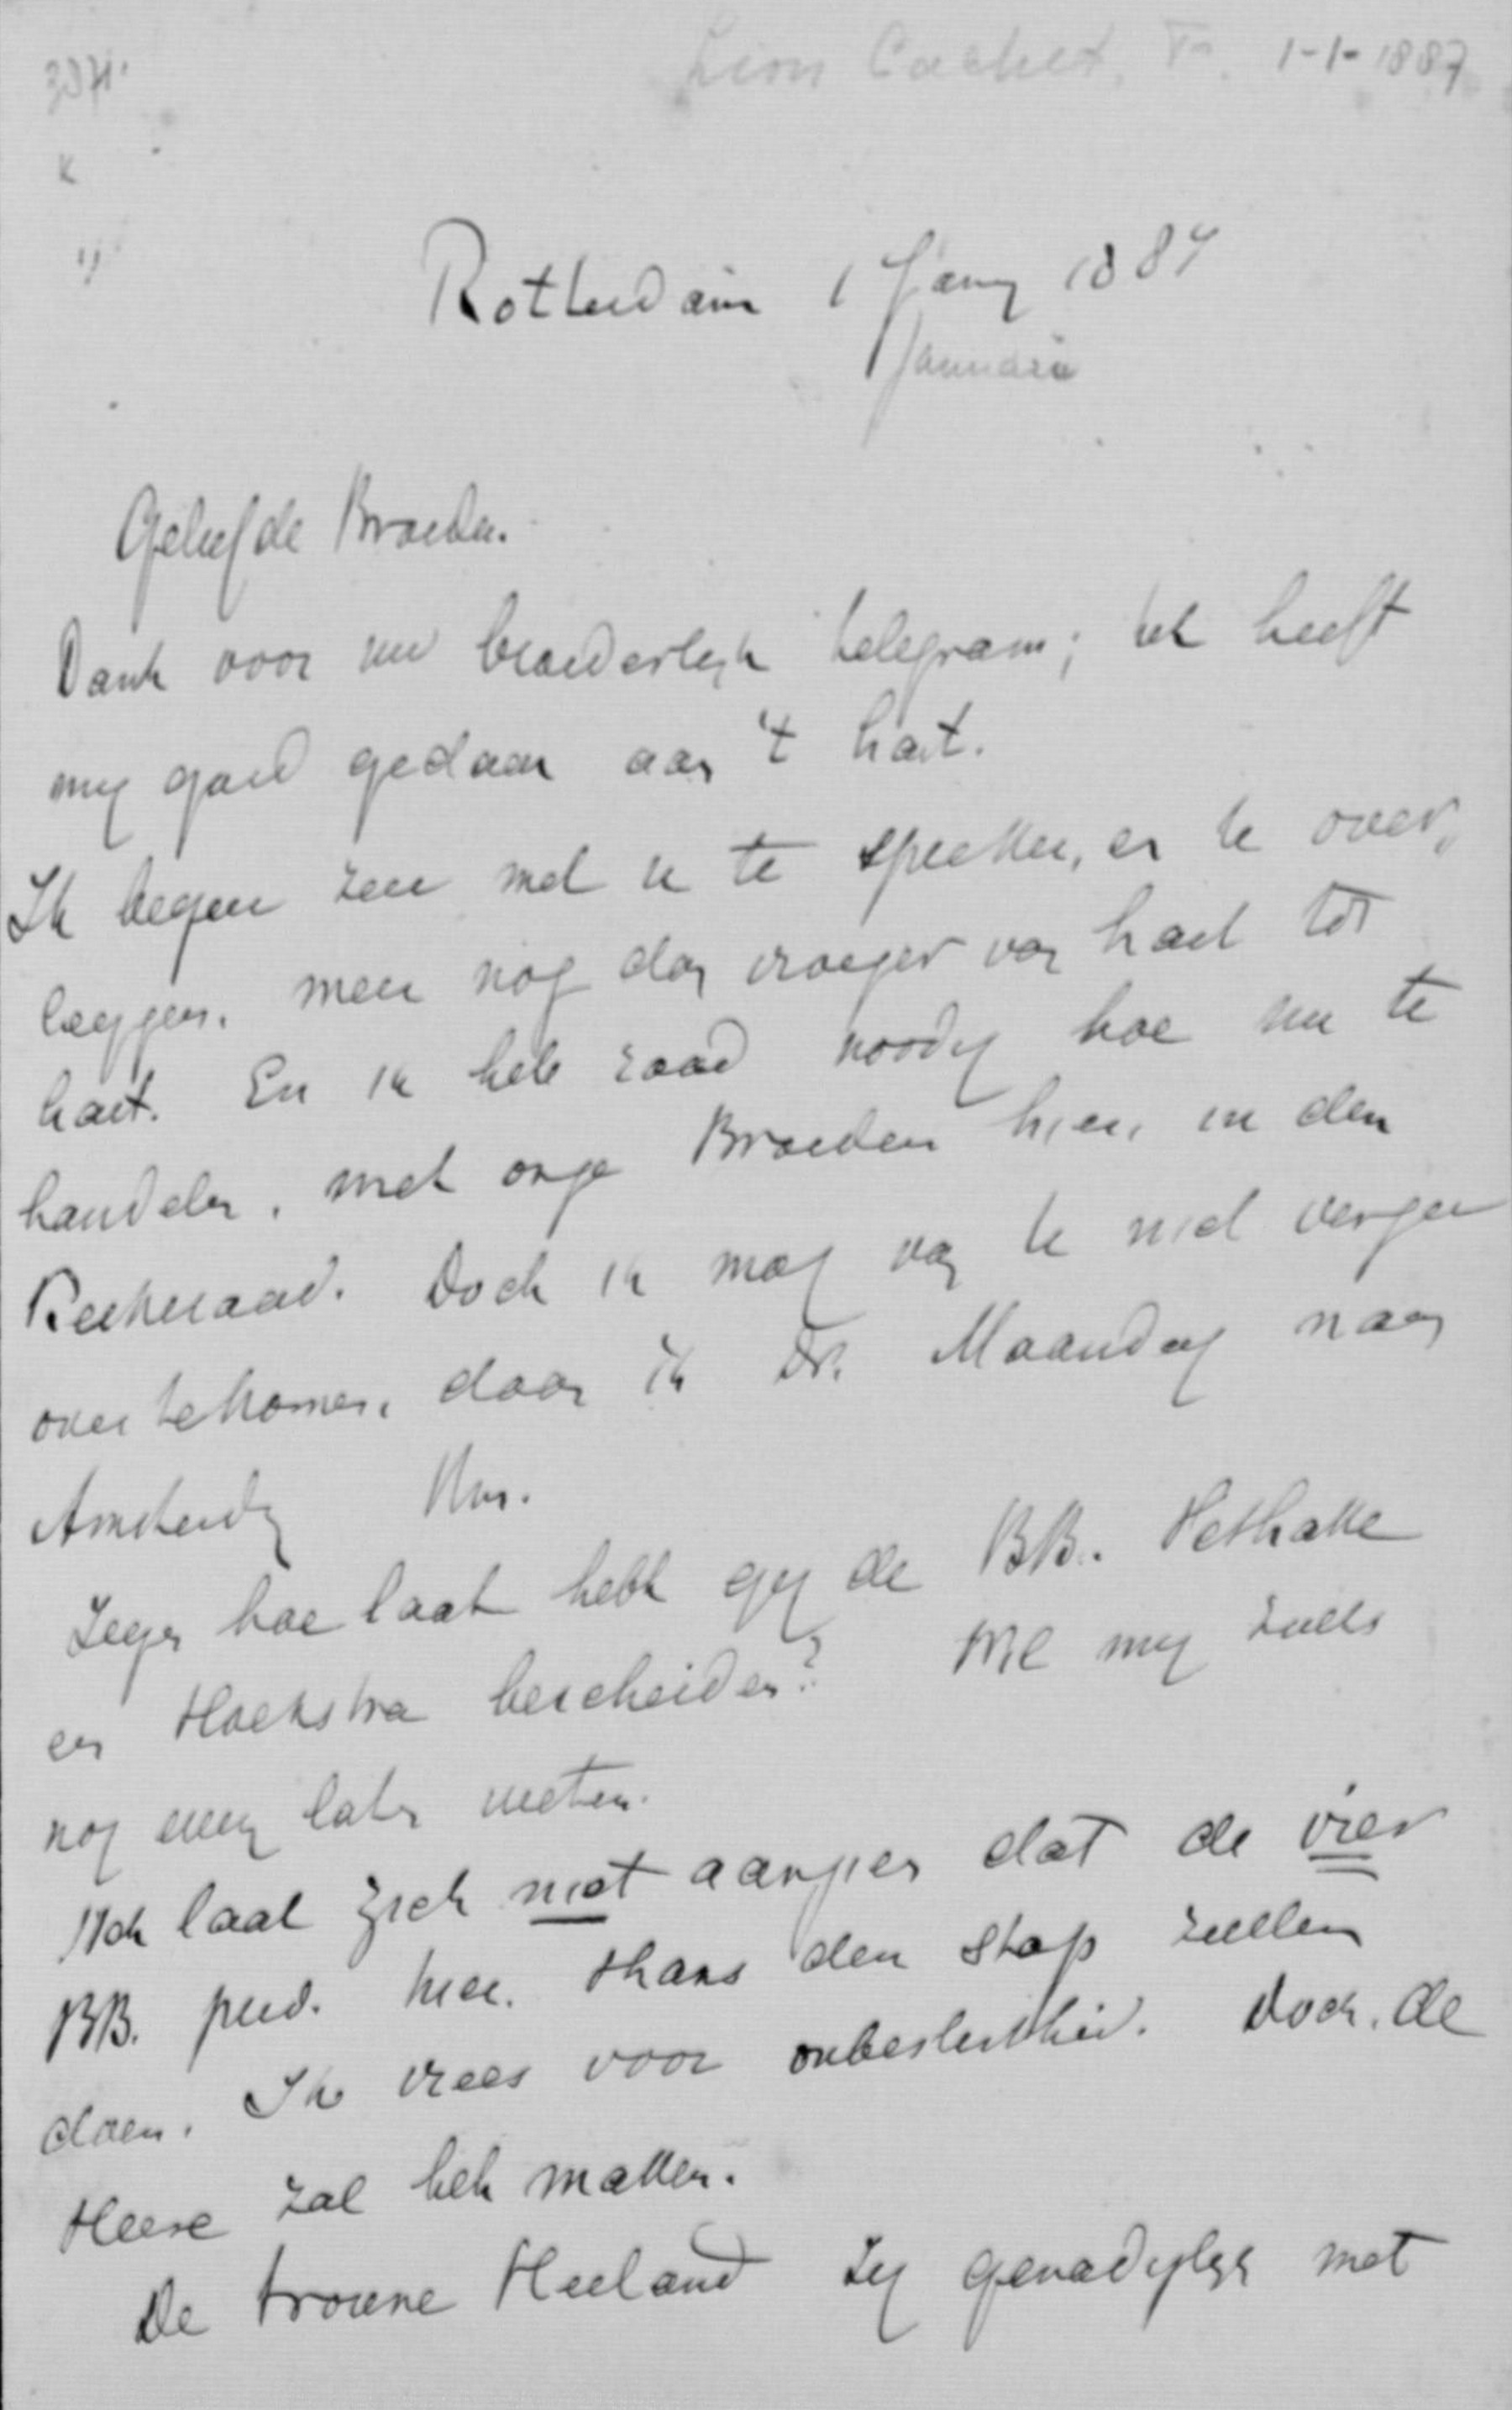 3971.
Lion Cachet, Fr. 1-1-1887
Rotterdam 1 Jany 1887
Januari
Geliefde Broeder.
Dank voor uw broederlyk telegram; het heeft
my goed gedaan aan 't hart.
Ik begeer zeer met u te spreken, en te over,
leggen, meer nog dan vroeger van hart tot
hart. En ik heb raad noodig hoe nu te
handelen, met onze Broeders hier, in den
Kerkeraad. Doch ik mag van U niet vergen
over te komen, daar ik Dr. Maandag naar
Amsterdam
Zeg hoe laat hebt gy de BB. Hethake
en Hoekstra bescheiden? Wil my zulks
nog even laten weten.
laat zich niet aanzien dat de vier
BB. pred. hier, thans den stap zullen
doen. Ik vrees voor onbeslistheid. Doch, de
Heere zal het maken.
De trouwe Heeland zy genadiglyk met